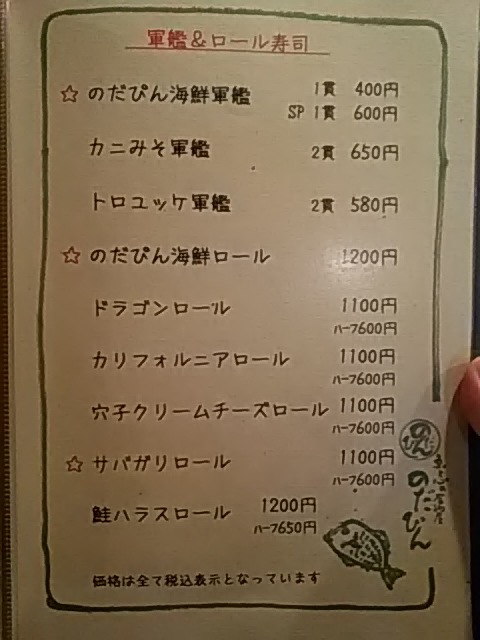 軍艦＆ロール寿司
☆ のだぴん海鮮軍艦 1貫 400円
SP 1貫 600円
カニみそ軍艦 2貫 650円
トロユッケ軍艦 2貫 580円
☆ のだぴん海鮮ロール 1200円
ドラゴンロール 1100円
ハーフ600円
カリフォルニアロール 1100円
ハーフ600円
穴子クリームチーズロール 1100円
ハーフ600円
☆ サバガリロール 1100円
ハーフ600円
鮭ハラスロール 1200円
ハーフ650円
のだぴん
価格は全て税込表示となっています